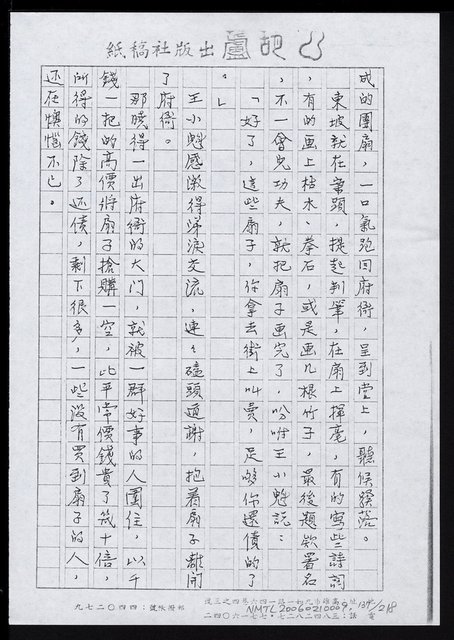 山 葫蘆出版社稿紙
成的團扇，一口氣跑回府衙，呈到堂上，聽候發落。
東坡就在案頭，提起判筆，在扇上揮毫，有的寫些詩詞
，有的画上枯木、拳石，或是画几根竹子，最後題欵署名
，不一會兒功夫，就把扇子画完了，吩咐王小魁説：
「好了，這些扇子，你拿去街上叫賣，足够你還債的了
。」
王小魁感激得涕淚交流，連々磕頭道謝，抱着扇子離開
了府衙。
那曉得一出府衙的大门，就被一群好事的人圍住，以千
錢一把的高價將扇子搶購一空，比平常價錢貴了几十倍，
所得的錢除了还債，剩下很多，一些没有買到扇子的人，
还在懊惱不已。
NMTL20060210009. 134/218
電話：三八四二八七・七七一六〇四二
郵撥帳號：四四〇二七九